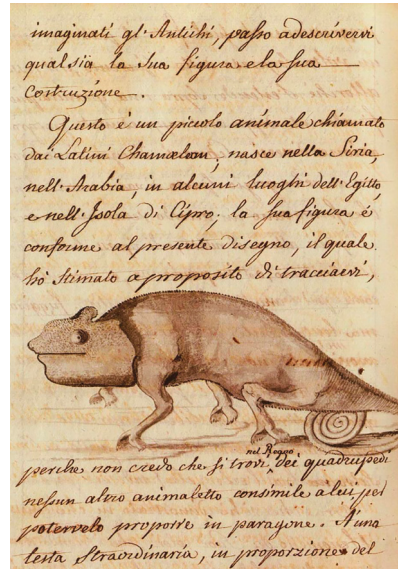 imaginati gl'Antichi, passo a descrivervi
qual sia la sua figura e la sua
costruzione.
Questo è un piccolo animale chiamato
dai Latini Chamæleon, nasce nella Siria,
nell'Arabia, in alcuni luoghi dell'Egitto,
e nell'Isola di Cipro; la sua figura é
conforme al presente disegno, il quale
hò stimato a proposito di tracciarvi,
perche non credo che si trovi nel Regno dei quadrupedi
nessun altro animaletto consimile a lui per
potervelo proporre in paragone. A' una
testa straordinaria, in proporzione del